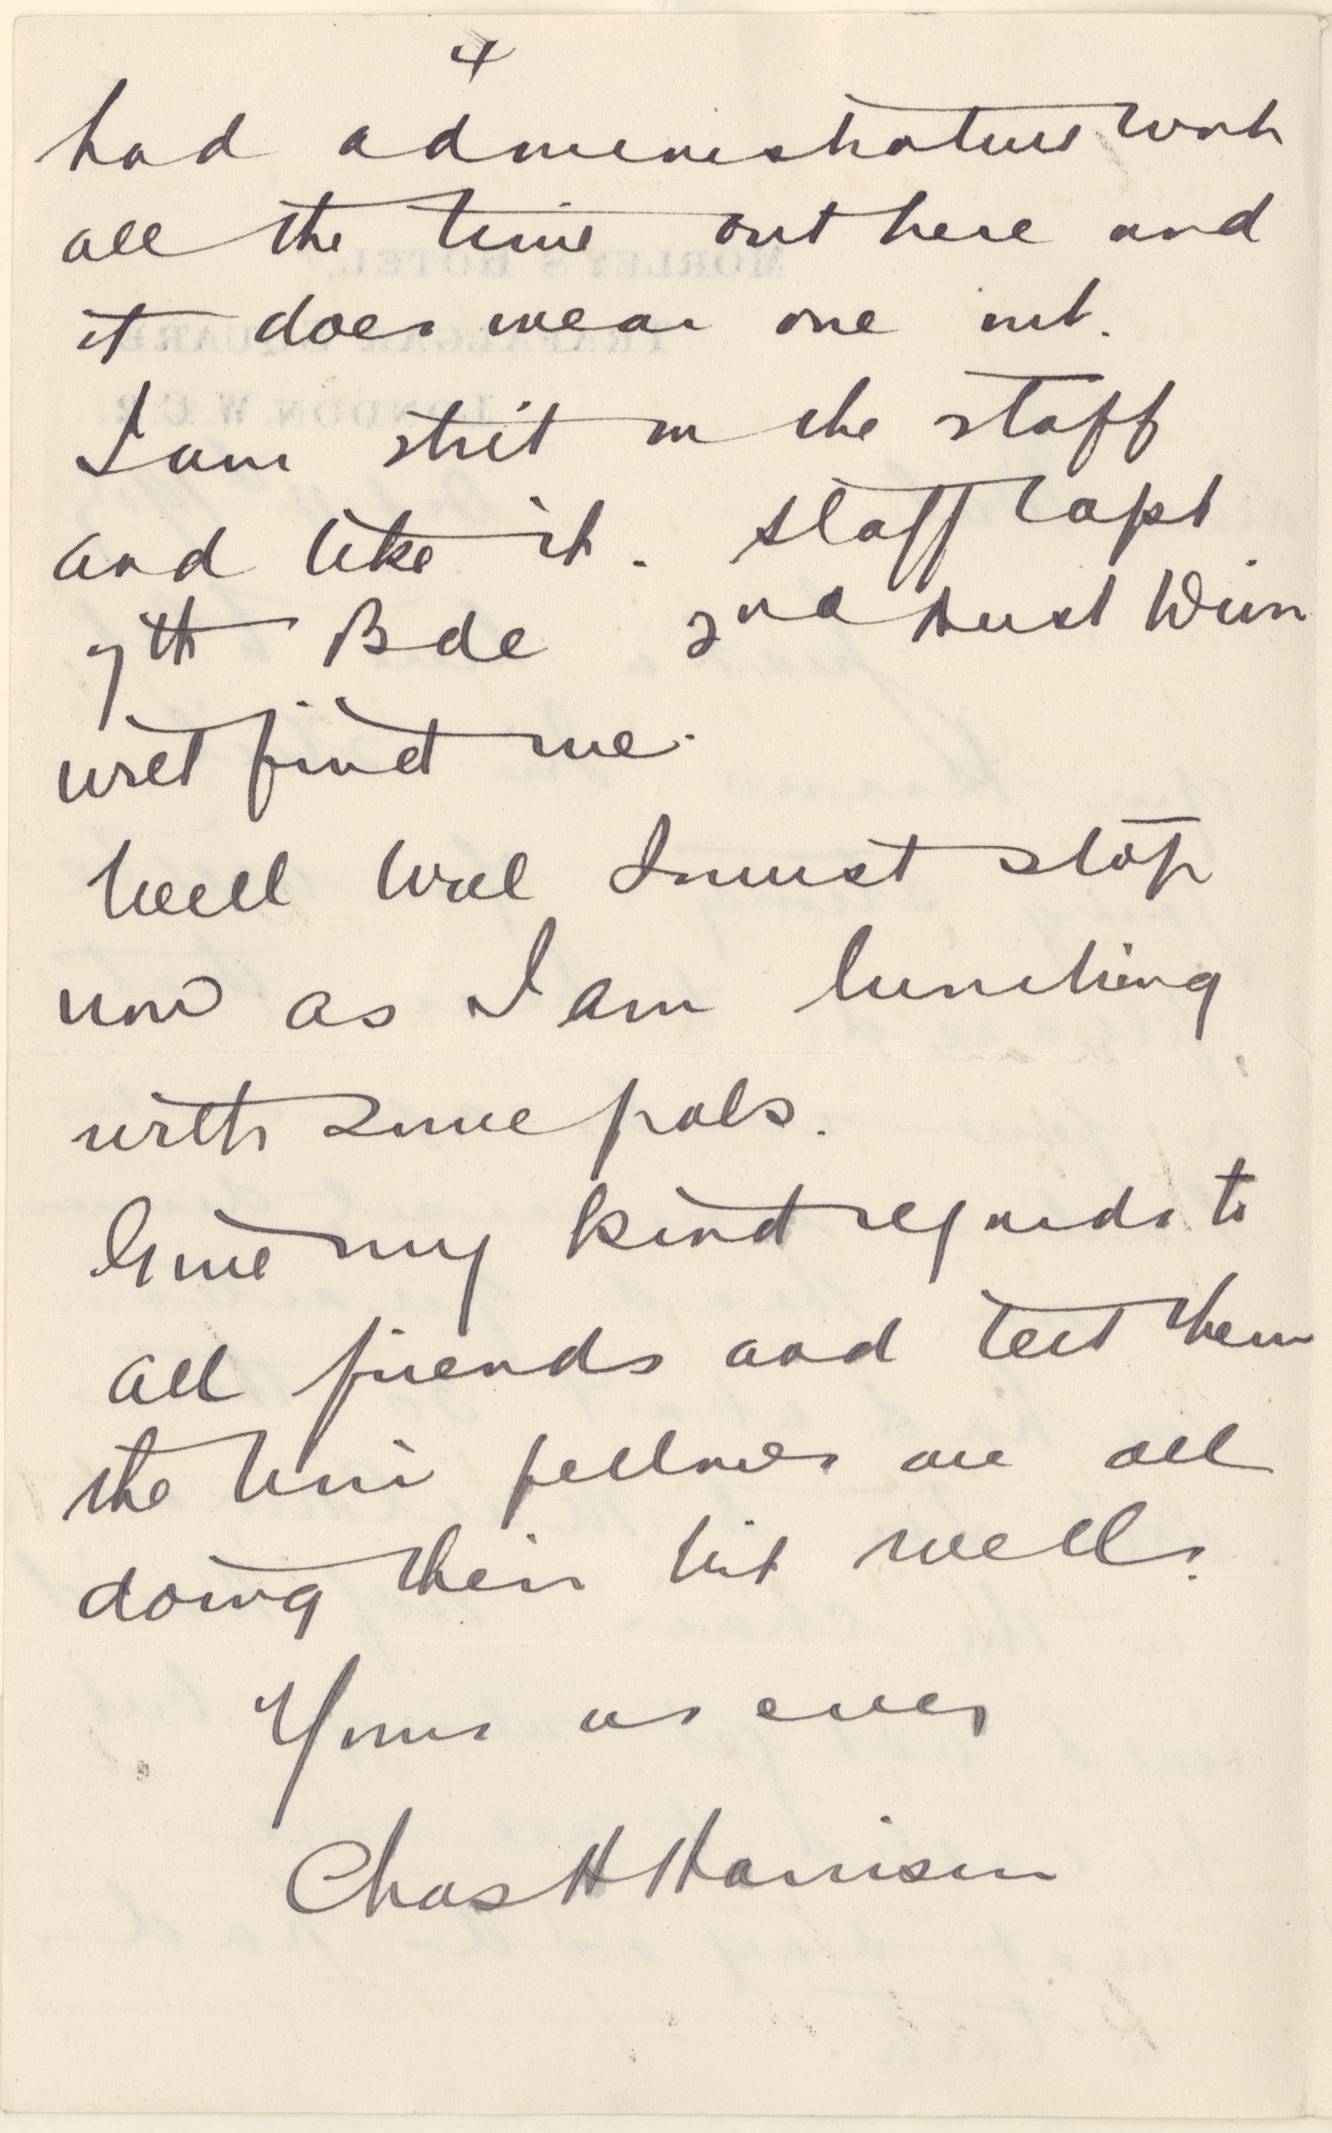 4
had administrative work
all the time out here and
it does wear one out.
I am still on the staff
and like it. Staff Capt
7th Bde 2nd Aust Divn
will find me.
Well Well I must stop
now as I am lunching
with some pals.
Give my kind regards to
all friends and tell them
the Uni fellows are all
doing their bit well.
Yours as ever
Chas H Harrison